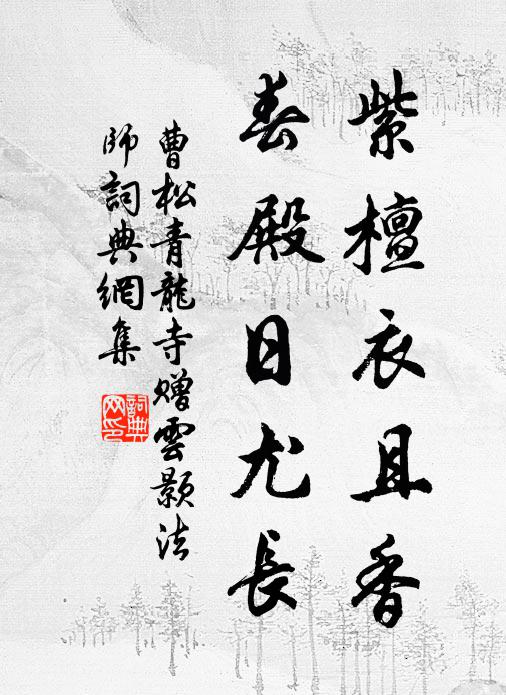 紫檀衣且香
春殿日尤長
曹松青龍寺贈雲顥法
師詞典網集
詞典網印